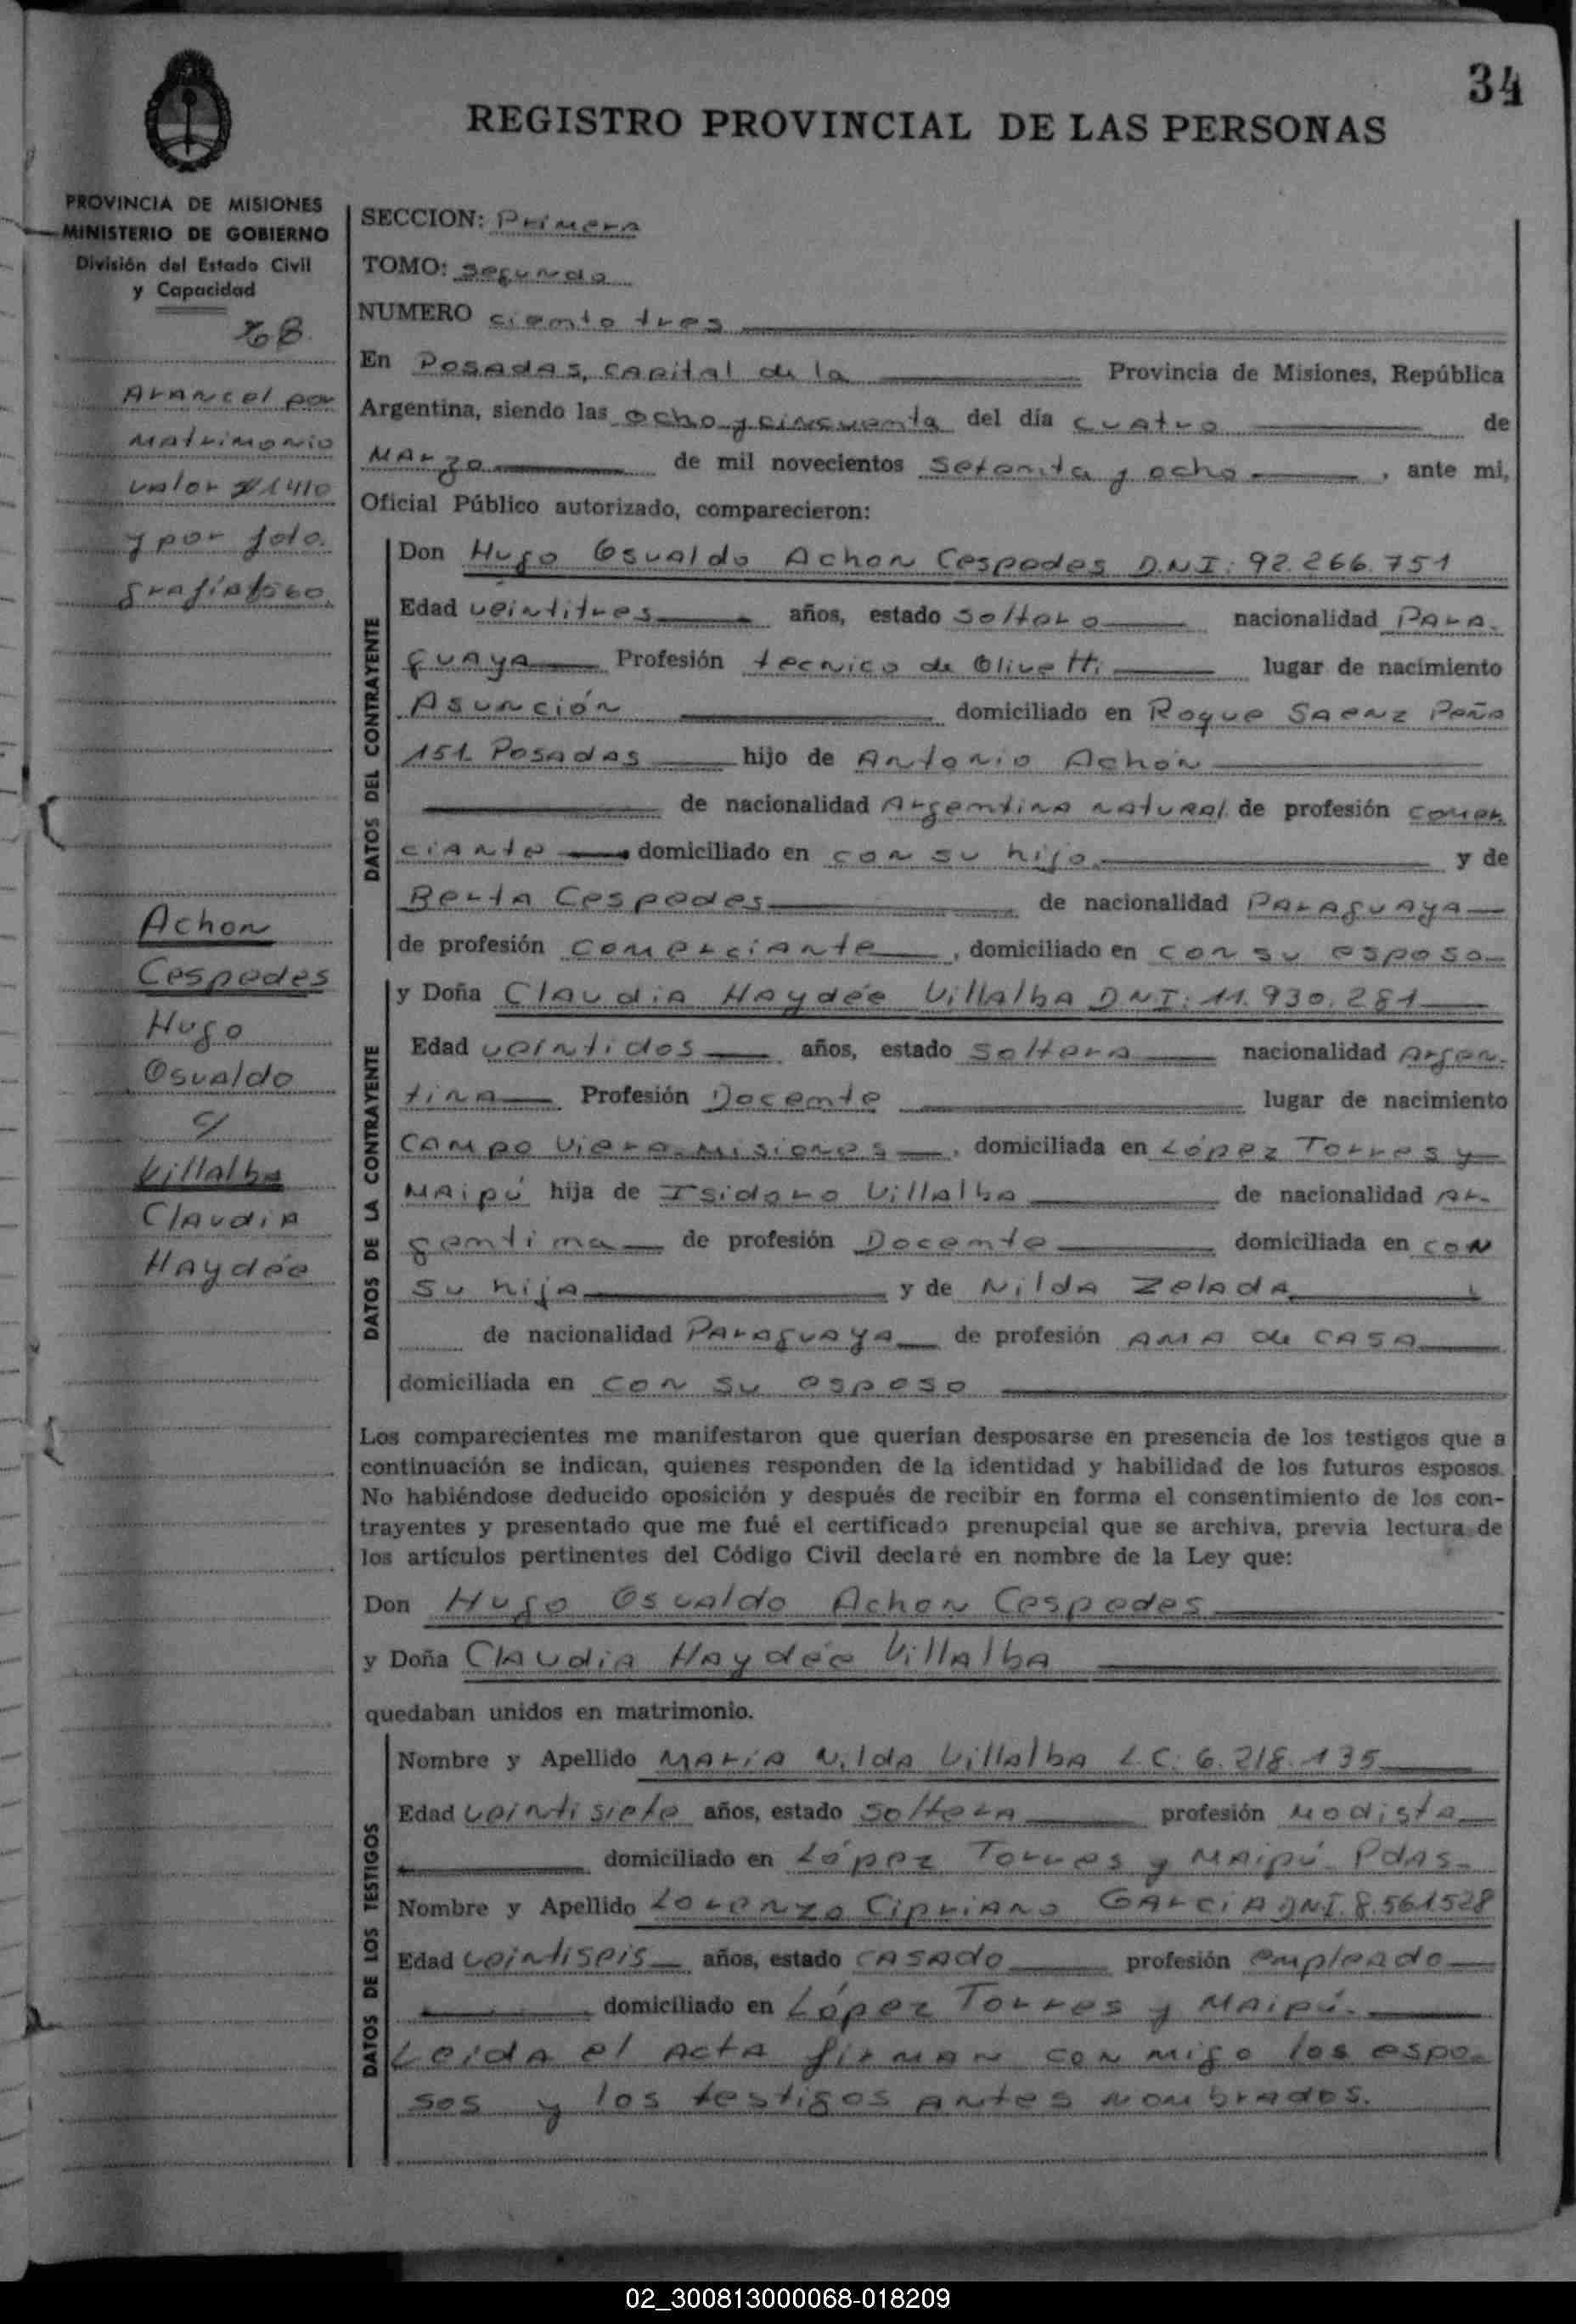 34
REGISTRO PROVINCIAL DE LAS PERSONAS
PROVINCIA DE MISIONES
MINISTERIO DE GOBIERNO
División del Estado Civil
y Capacidad
Arancel por
Matrimonio
valor $1410
y por foto
Achon
Cespedes
Hugo
Osvaldo
c/
Villalba
Claudia
Haydée
SECCION: Primera
TOMO: segundo
NUMERO ciento tres
En Posadas, capital de la Provincia de Misiones, República
Argentina, siendo las ocho y cincuenta del día cuatro de
Marzo de mil novecientos setenta y ocho, ante mi,
Oficial Público autorizado, comparecieron:
DATOS DEL CONTRAYENTE
Don Hugo Osvaldo Achon Cespedes D.N.I: 92.266.751
Edad veintitres años, estado soltero nacionalidad Para-
guaya Profesión tecnico de Olivetti lugar de nacimiento
Asunción domiciliado en Roque Saenz Peña
151 Posadas hijo de Antonio Achón
de nacionalidad Argentina natural de profesión comer
ciante domiciliado en con su hijo y de
Berta Cespedes de nacionalidad Paraguaya
de profesión comerciante, domiciliado en con su esposo
DATOS DE LA CONTRAYENTE
y Doña Claudia Haydée Villalba DNI: 11.930.281
Edad veintidos años, estado soltera nacionalidad Argen-
tina Profesión Docente lugar de nacimiento
Campo Viera-Misiones, domiciliada en López Torres y
Maipú hija de Isidoro Villalba de nacionalidad Ar-
gentina de profesión Docente domiciliada en con
su hija y de Nilda Zelada
de nacionalidad Paraguaya de profesión ama de casa
domiciliada en con su esposo
Los comparecientes me manifestaron que querían desposarse en presencia de los testigos que a
continuación se indican, quienes responden de la identidad y habilidad de los futuros esposos.
No habiéndose deducido oposición y después de recibir en forma el consentimiento de los con-
trayentes y presentado que me fué el certificado prenupcial que se archiva, previa lectura de
los artículos pertinentes del Código Civil declaré en nombre de la Ley que:
Don Hugo Osvaldo Achon Cespedes
y Doña Claudia Haydée Villalba
quedaban unidos en matrimonio.
DATOS DE LOS TESTIGOS
Nombre y Apellido Maria Nilda Villalba L.C. 6.218.135
Edad veintisiete años, estado soltera profesión Modista
domiciliado en López Torres y Maipú- Pdas-
Nombre y Apellido Lorenzo Cipriano Garcia DNI. 8.561528
Edad veintiseis años, estado casado profesión empleado
domiciliado en López Torres y Maipú.
Leida el acta firman con migo los espo-
sos y los testigos antes nombrados.
02_300813000068-018209